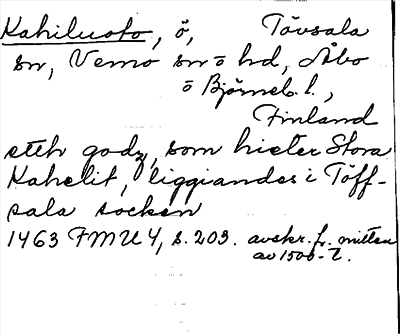 Kahiluoto, ö, Tövsala
sn, Vemo sn o hd, Åbo
o Björneb. l.,
Finland
etth godz, som hieter Stora
Kahelit, liggiandes i Töff-
sala socken
1463 FMU 4, s. 203. avskr. fr. mitten
av 1500-t.